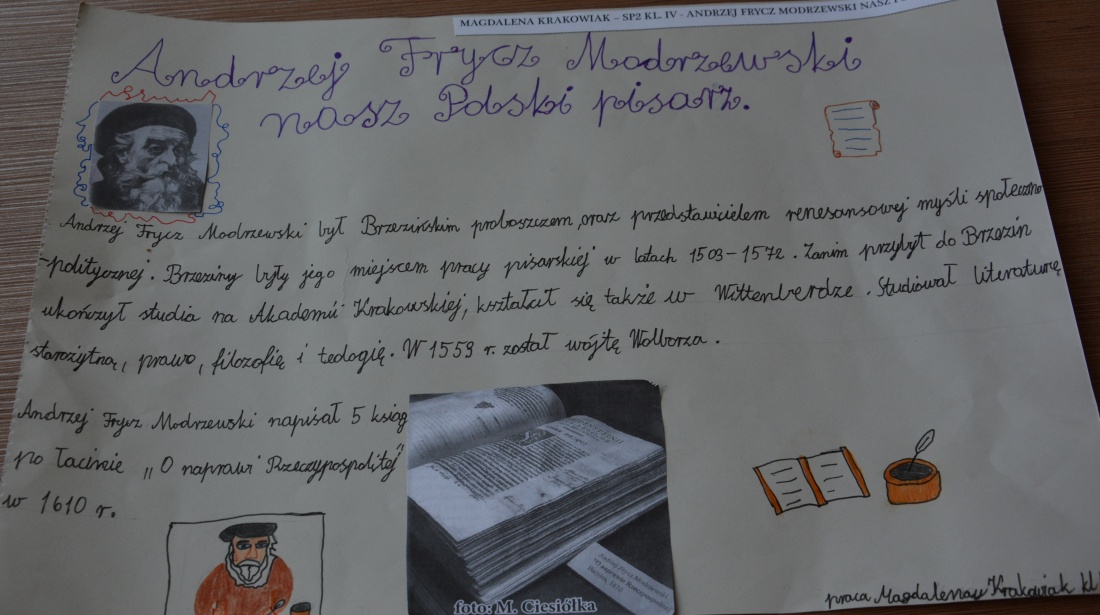 MAGDALENA KRAKOWIAK – SP2 KL. IV - ANDRZEJ FRYCZ MODRZEWSKI NASZ
Andrzej Frycz Modrzewski
nasz Polski pisarz.
Andrzej Frycz Modrzewski był Brzezińskim proboszczem, oraz przedstawicielem renesansowej myśli społeczno
-politycznej. Brzeziny były jego miejscem pracy pisarskiej w latach 1503-1572. Zanim przybył do Brzezin
ukończył studia na Akademii Krakowskiej, kształcił się także w Wittenberdze. Studiował literaturę
starożytną, prawo, filozofię i teologię. W 1553 r. został wójtę Wolborza.
Andrzej Frycz Modrzewski napisał 5 ksiąg
po łacinie „O naprawi Rzeczypospolitej"
w 1610 r.
foto: M. Ciesiółka
praca Magdaleny Krakowiak kl